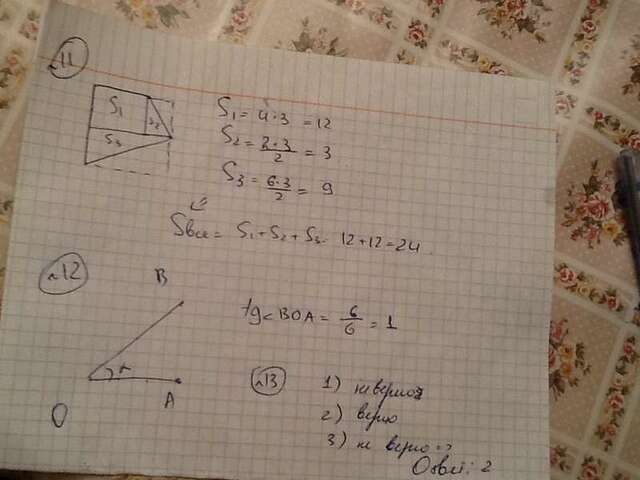 11
S1 = 4·3 = 12
S1
S2
S2 = 2·3/2 = 3
S3
S3 = 6·3/2 = 9
Sвсе = S1 + S2 + S3 = 12+12=24
№12
B
tg<BOA = 6/6 = 1
O
A
№13
1) неверно
2) верно
3) не верно
Ответ: 2